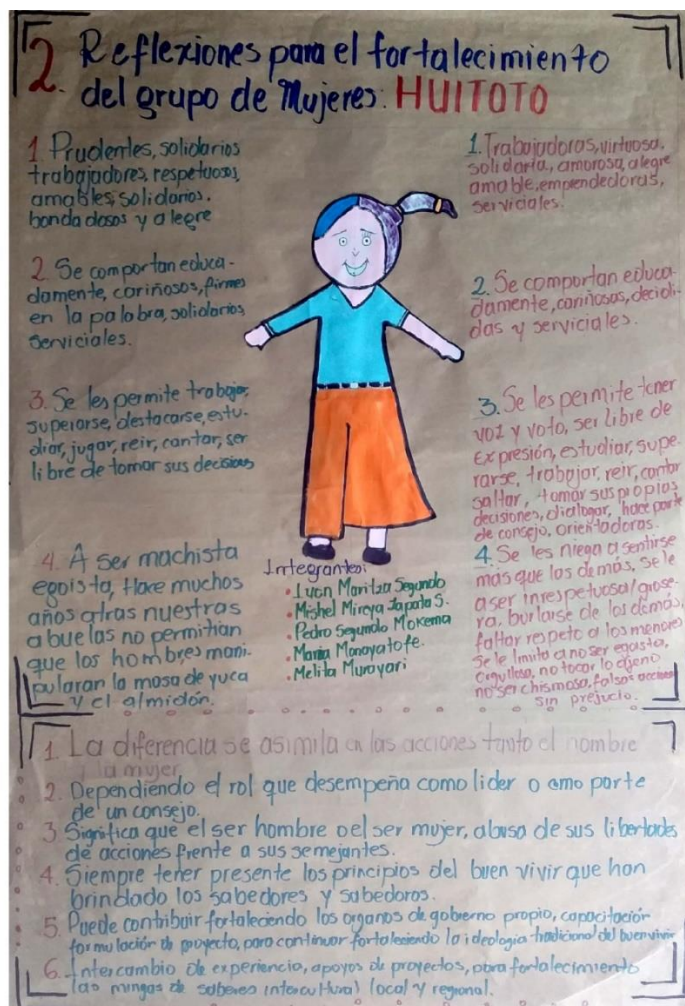 2. Reflexiones para el fortalecimiento
del grupo de Mujeres: HUITOTO
1. Prudentes, solidarios
trabajadores, respetuosos,
amables, solidarios.
bondadosos y alegre
2. Se comportan educa-
damente, cariñosos, firmes
en la palabra, solidarios,
serviciales.
3. Se les permite trabajar,
superarse, destacarse, estu-
diar, jugar, reir, cantar, ser
libre de tomar sus decisiones
4. A ser machista
egoista, Hace muchos
años atras nuestras
abuelas no permitian
que los hombres mani-
pularan la masa de yuca
y el almidón.
1. Trabajadoras, virtuosa,
solidaria, amorosa, alegre
amable, emprendedoras,
serviciales.
2. Se comportan educa-
damente, cariñosas, decidi-
das y serviciales.
3. Se les permite tener
voz y voto, ser libre de
Expresión, estudiar, supe-
rarse, trabajar, reir, cantar
saltar, tomar sus propias
decisiones, dialogar, hace parte
de consejo, orientadoras.
4. Se les niega a sentirse
mas que las demás, se le
a ser inrespetuosa/grose-
ra, burlarse de los demás,
faltar respeto a los menores
Se le limita a no ser egoista,
Orgullosa, no tocar lo ajeno
no ser chismosa, falsas
sin prejucio.
Integrantes:
Maritza Segundo
Mishel Mireya Zapata S.
Pedro Segundo Mokema
Maria Monayatofe.
Melita Murayari
1. La diferencia se asimila en las acciones tanto el hombre
y la mujer
2. Dependiendo el rol que desempeña como lider o como parte
de un consejo.
3 Significa que el ser hombre o el ser mujer, abusa de sus libertades
de acciones frente a sus semejantes.
4. Siempre tener presente los principios del buen vivir que han
brindado los sabedores y sabedoras.
5. Puede contribuir fortaleciendo los organos de gobierno propio, capacitación
formulación de proyecto, para continuar fortaleciendo la ideologia tradicional del buen vivir
6. Intercambio de experiencia, apoyos de proyectos, para fortalecimiento
las mingas de saberes intercultural local y regional.